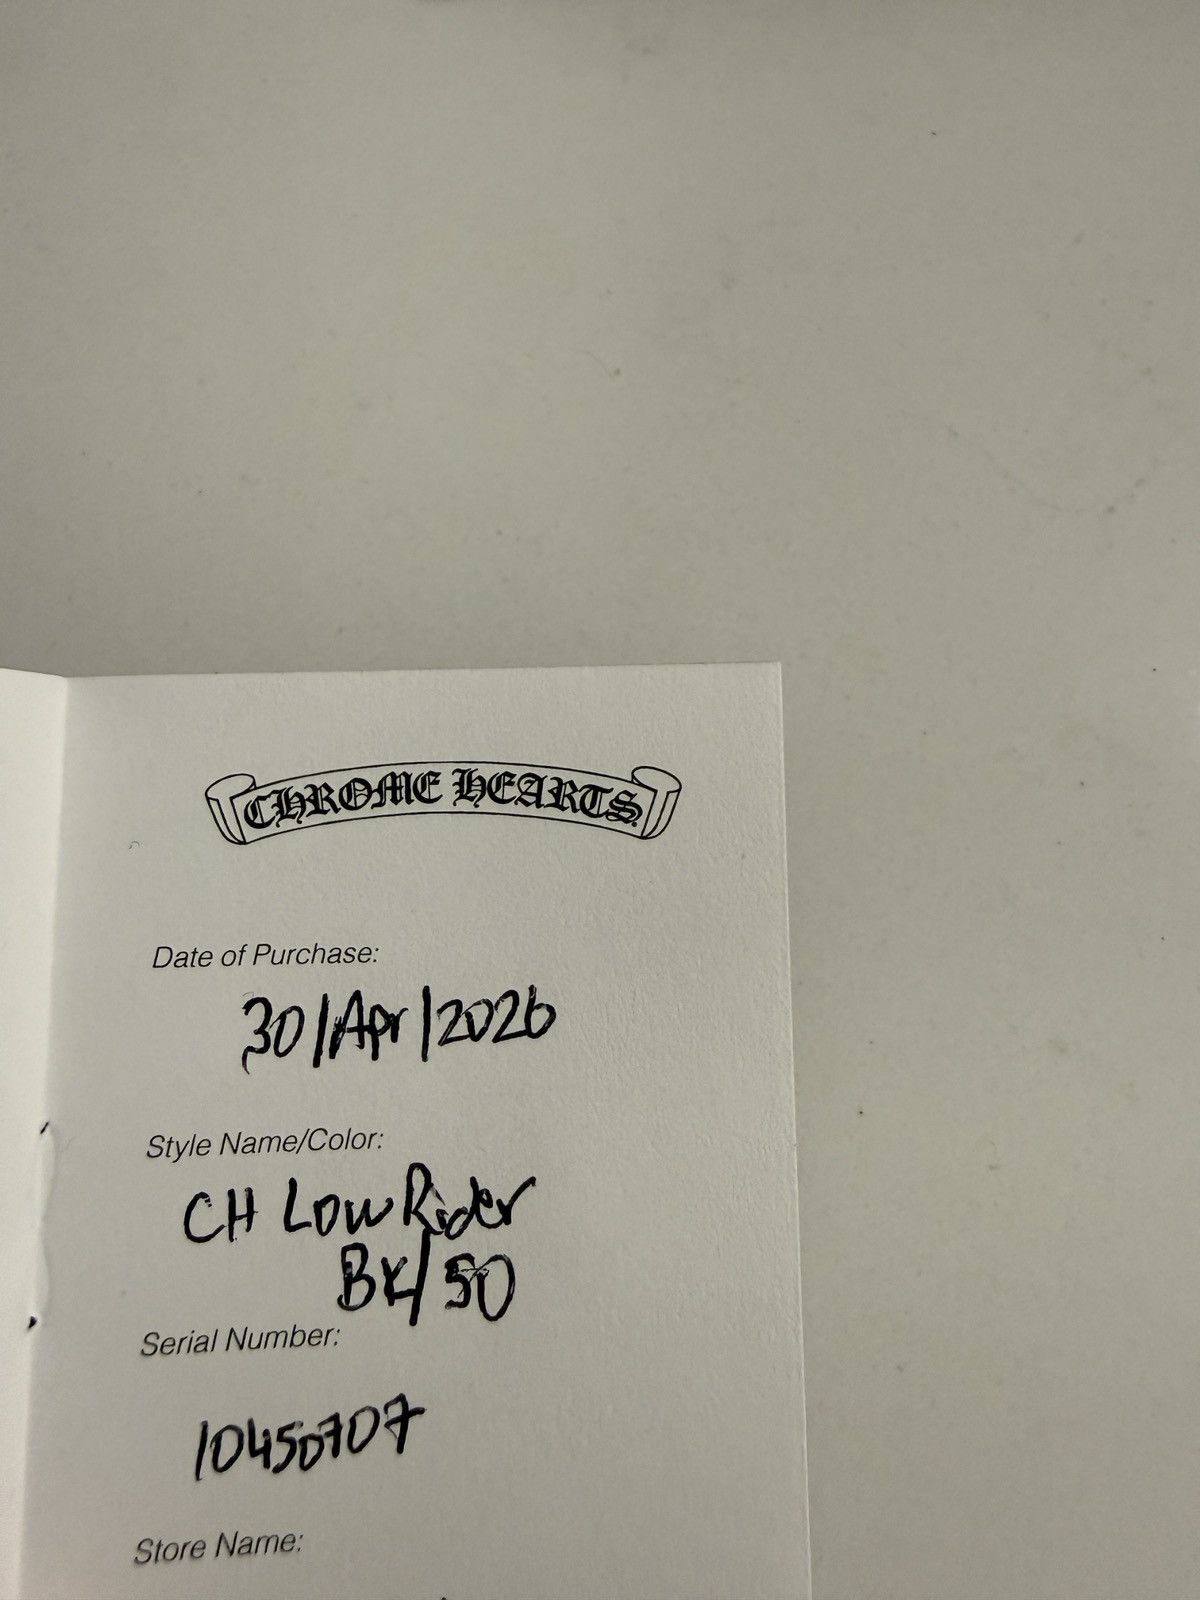 CHROME HEARTS
Date of Purchase:
30/Apr/2026
Style Name/Color:
CH Low Rider
BK/50
Serial Number:
10450707
Store Name: